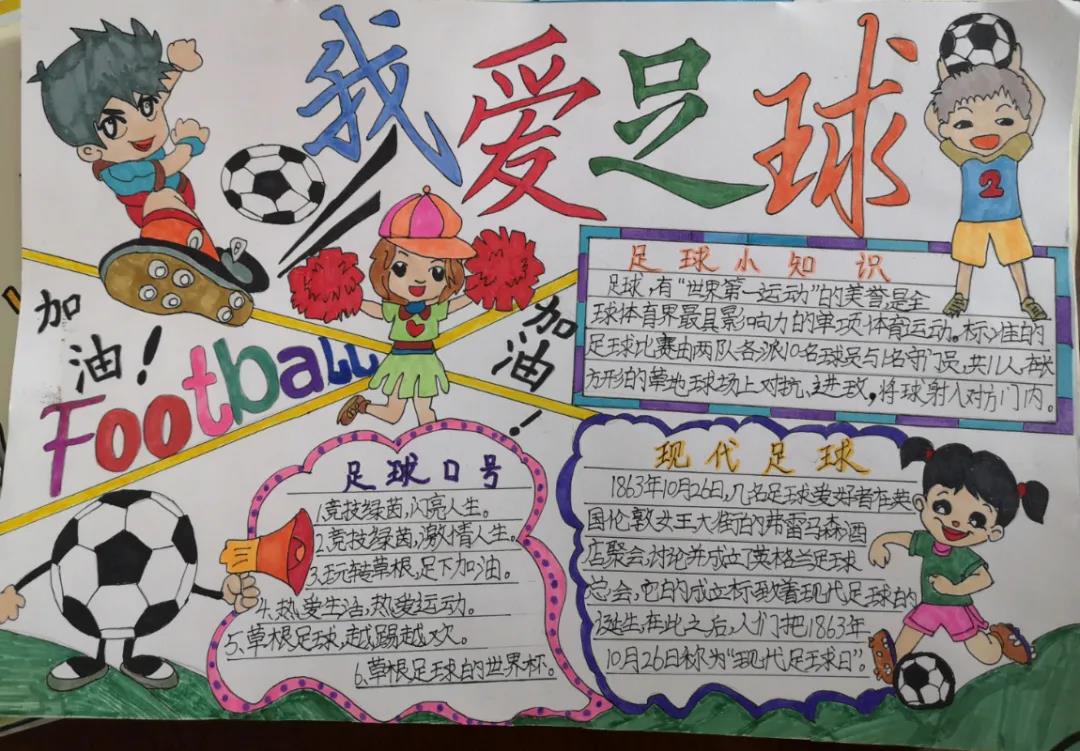 我爱足球
加
油！
加
油
！
Football
2
足球小知识
足球,有“世界第一运动”的美誉,是全
球体育界最具影响力的单项体育运动。标准的
足球比赛由两队各派10名球员与1名守门员,共11人,在长
方形的草地球场上对抗、进攻,将球射入对方门内。
足球口号
1.竞技绿茵,闪亮人生。
2.竞技绿茵,激情人生。
3.玩转草根,足下加油。
4.热爱生活,热爱运动。
5.草根足球,越踢越欢。
6.草根足球的世界杯。
现代足球
1863年10月26日,几名足球爱好者在英
国伦敦女王大街的弗雷马森酒
店聚会讨论并成立了英格兰足球
总会,它的成立标致着现代足球的
诞生,在此之后,人们把1863年
10月26日称为“现代足球日”。